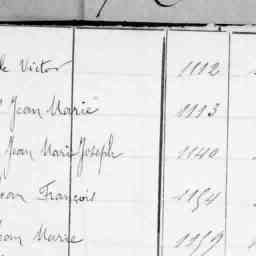 Victor 1112
Jean Marie 1113
Jean Marie Joseph 1140
François 1154
Jean Marie 1159